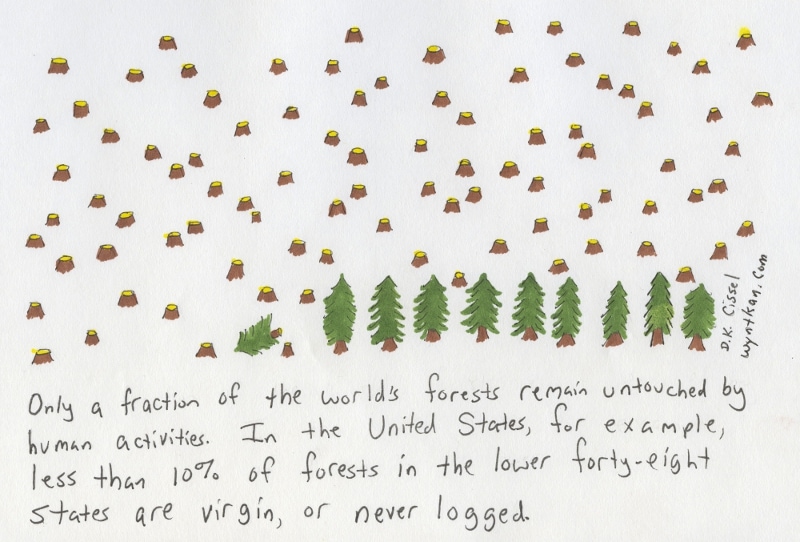 D.K. Cissel
wyntkan.com
Only a fraction of the world's forests remain untouched by
human activities. In the United States, for example,
less than 10% of forests in the lower forty-eight
states are virgin, or never logged.